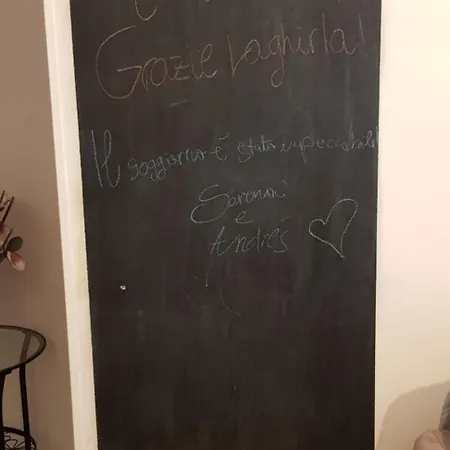 Grazie Laghirla!
Il soggiorno è stato impeccabile
Serena
e
Andrés